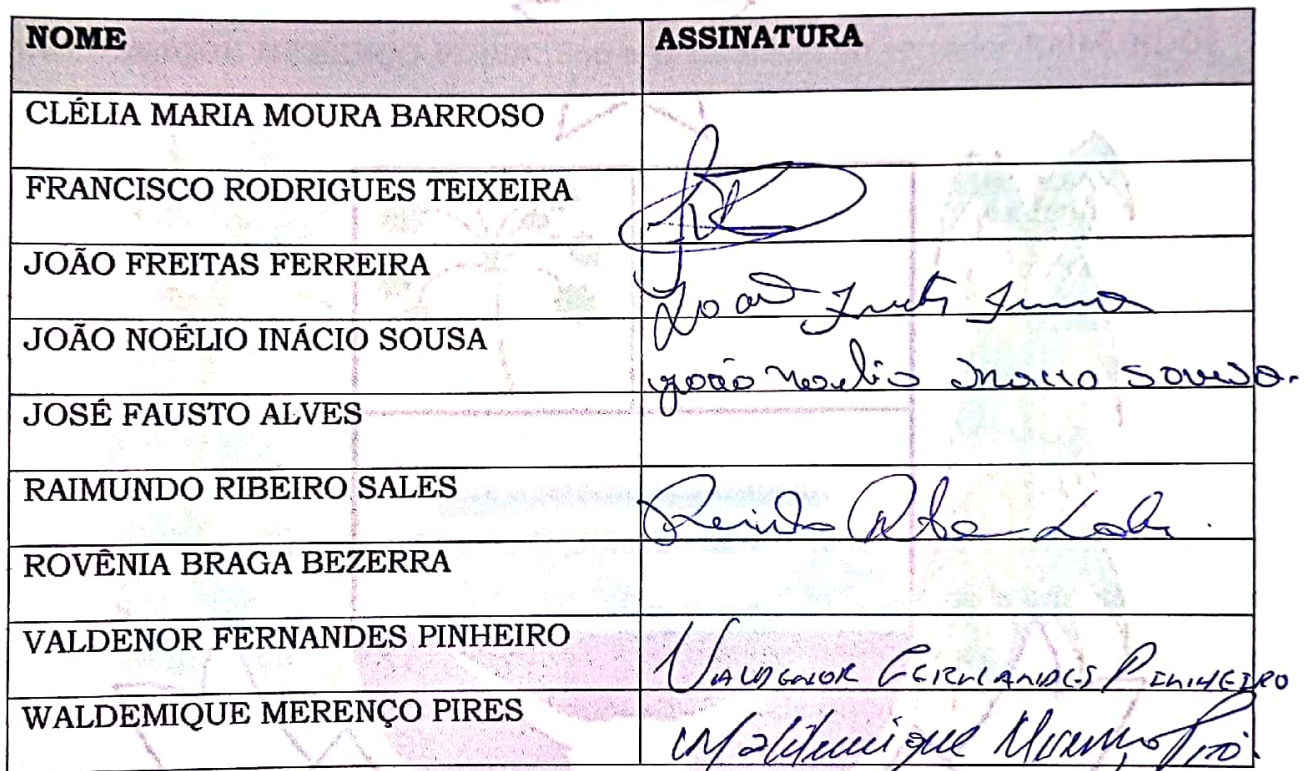 NOME ASSINATURA
CLÉLIA MARIA MOURA BARROSO
FRANCISCO RODRIGUES TEIXEIRA
JOÃO FREITAS FERREIRA
JOÃO NOÉLIO INÁCIO SOUSA João Noelio Inacio Sousa.
JOSÉ FAUSTO ALVES
RAIMUNDO RIBEIRO SALES
ROVÊNIA BRAGA BEZERRA
VALDENOR FERNANDES PINHEIRO VALDENOR FERNANDES PINHEIRO
WALDEMIQUE MERENÇO PIRES Waldemique